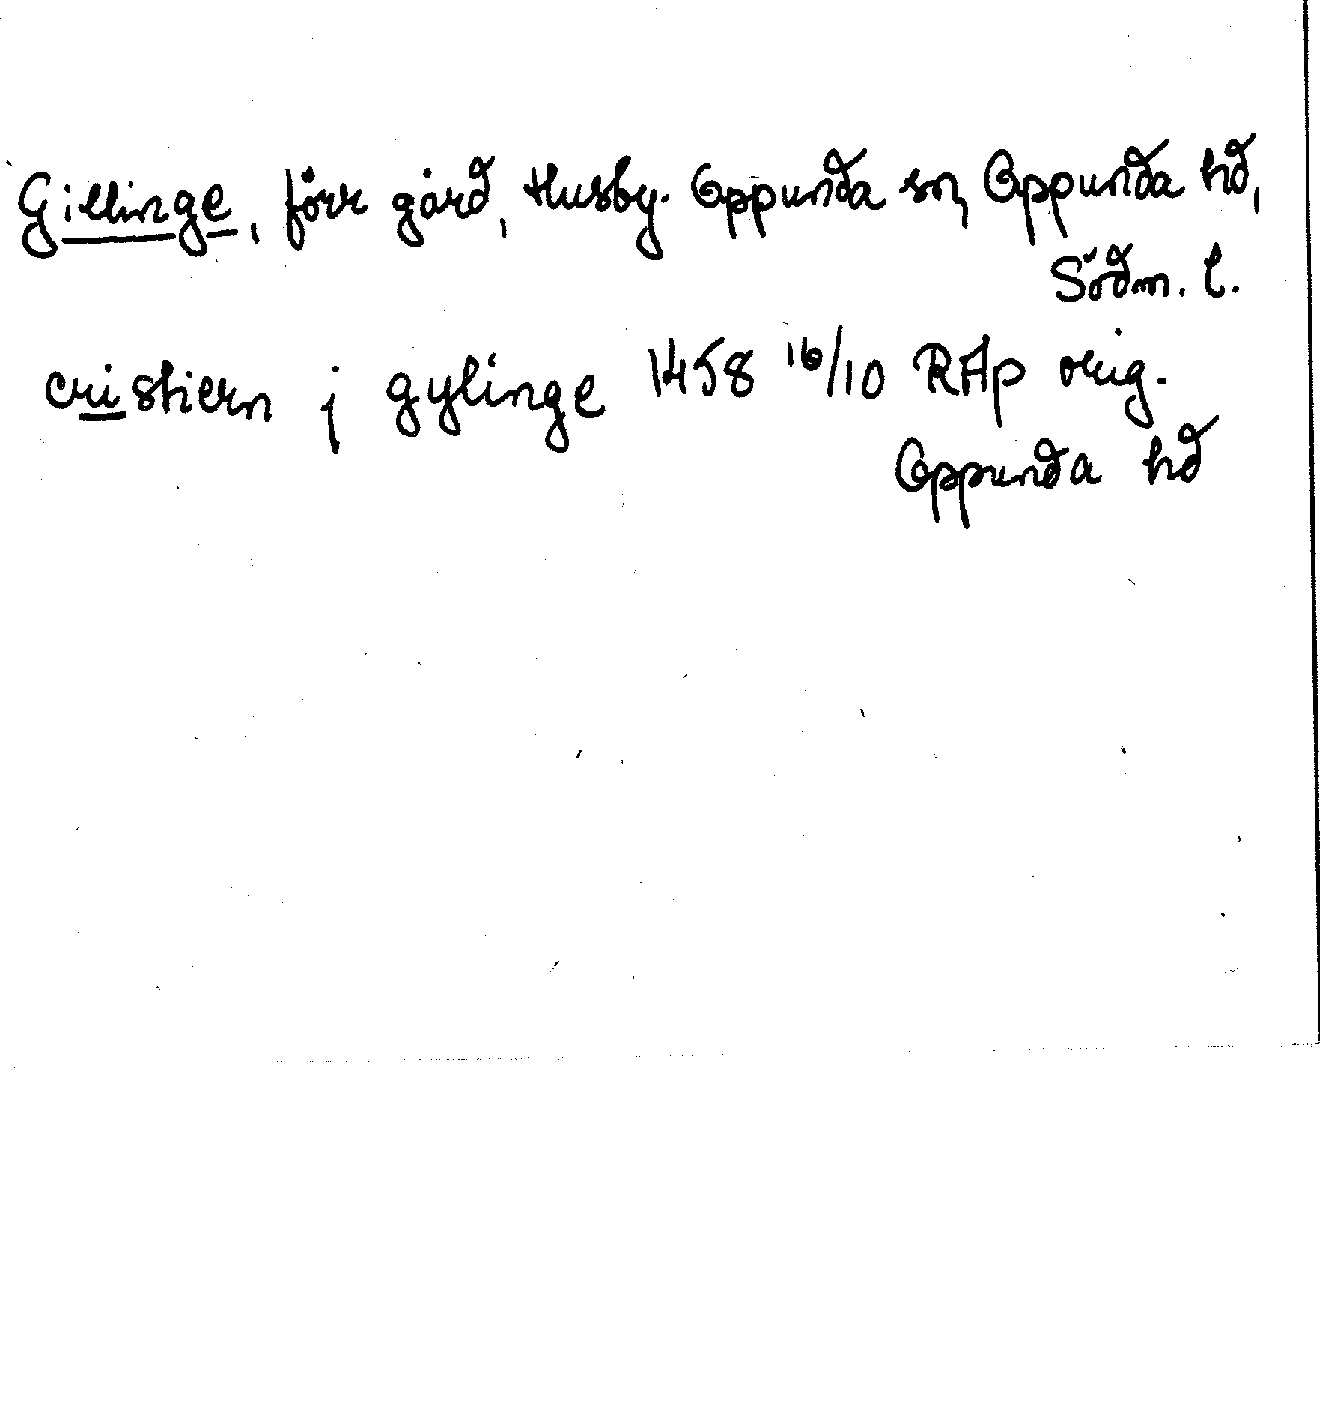 Gillinge, förr gård, Husby-Oppunda sn, Oppunda hd,
Södm. l.
cristiern j gylinge 1458 16/10 RAp orig.
Oppunda hd